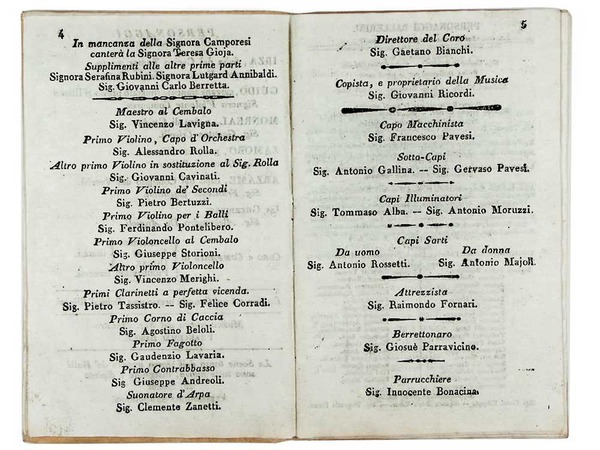 4
In mancanza della Signora Camporesi
canterà la Signora Teresa Gioja.
Supplimenti alle altre prime parti
Signora Serafina Rubini. Signora Lutgard Annibaldi.
Sig. Giovanni Carlo Berretta.
Maestro al Cembalo
Sig. Vincenzo Lavigna.
Primo Violino, Capo d'Orchestra
Sig. Alessandro Rolla.
Altro primo Violino in sostituzione al Sig. Rolla
Sig. Giovanni Cavinati.
Primo Violino de' Secondi
Sig. Pietro Bertuzzi.
Primo Violino per i Balli
Sig. Ferdinando Pontelibero.
Primo Violoncello al Cembalo
Sig. Giuseppe Storioni.
Altro primo Violoncello
Sig. Vincenzo Merighi.
Primi Clarinetti a perfetta vicenda.
Sig. Pietro Tassistro. -- Sig. Felice Corradi.
Primo Corno di Caccia
Sig. Agostino Beloli.
Primo Fagotto
Sig. Gaudenzio Lavaria.
Primo Contrabbasso
Sig Giuseppe Andreoli.
Suonatore d'Arpa
Sig. Clemente Zanetti.
5
Direttore del Coro
Sig. Gaetano Bianchi.
Copista, e proprietario della Musica
Sig. Giovanni Ricordi.
Capo Macchinista
Sig. Francesco Pavesi.
Sotto-Capi
Sig. Antonio Gallina. -- Sig. Gervaso Pavesi.
Capi Illuminatori
Sig. Tommaso Alba. -- Sig. Antonio Moruzzi.
Capi Sarti
Da uomo Da donna
Sig. Antonio Rossetti. Sig. Antonio Majoli.
Attrezzista
Sig. Raimondo Fornari.
Berrettonaro
Sig. Giosuè Parravicino.
Parrucchiere
Sig. Innocente Bonacina.